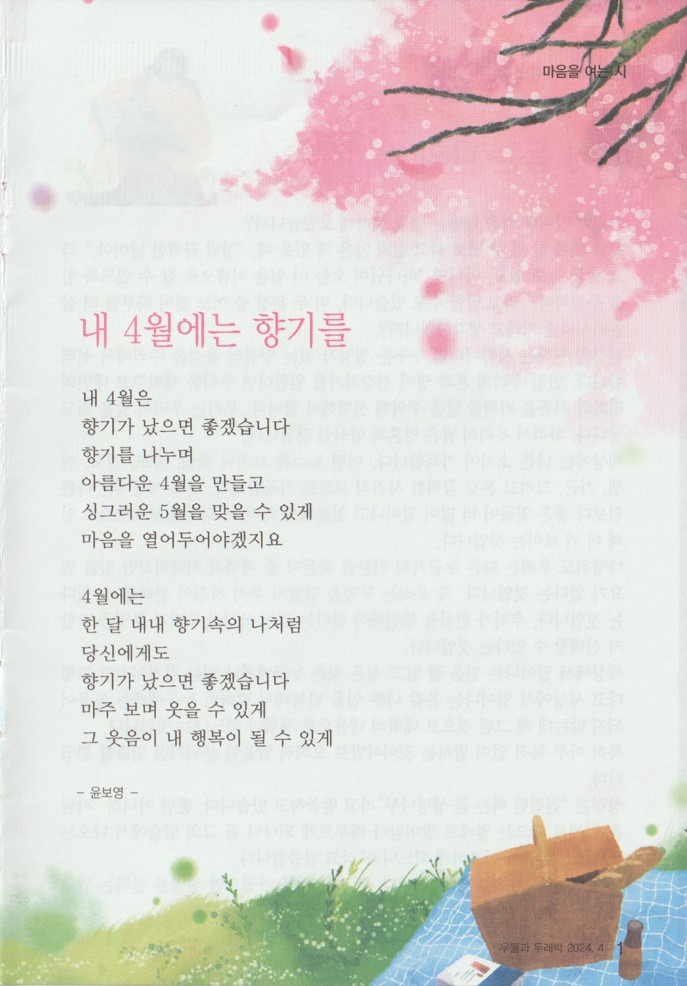 마음을 여는 시
내 4월에는 향기를
내 4월은
향기가 났으면 좋겠습니다
향기를 나누며
아름다운 4월을 만들고
싱그러운 5월을 맞을 수 있게
마음을 열어두어야겠지요
4월에는
한 달 내내 향기속의 나처럼
당신에게도
향기가 났으면 좋겠습니다
마주 보며 웃을 수 있게
그 웃음이 내 행복이 될 수 있게
- 윤보영 -
우물과 두레박 2024. 4 1